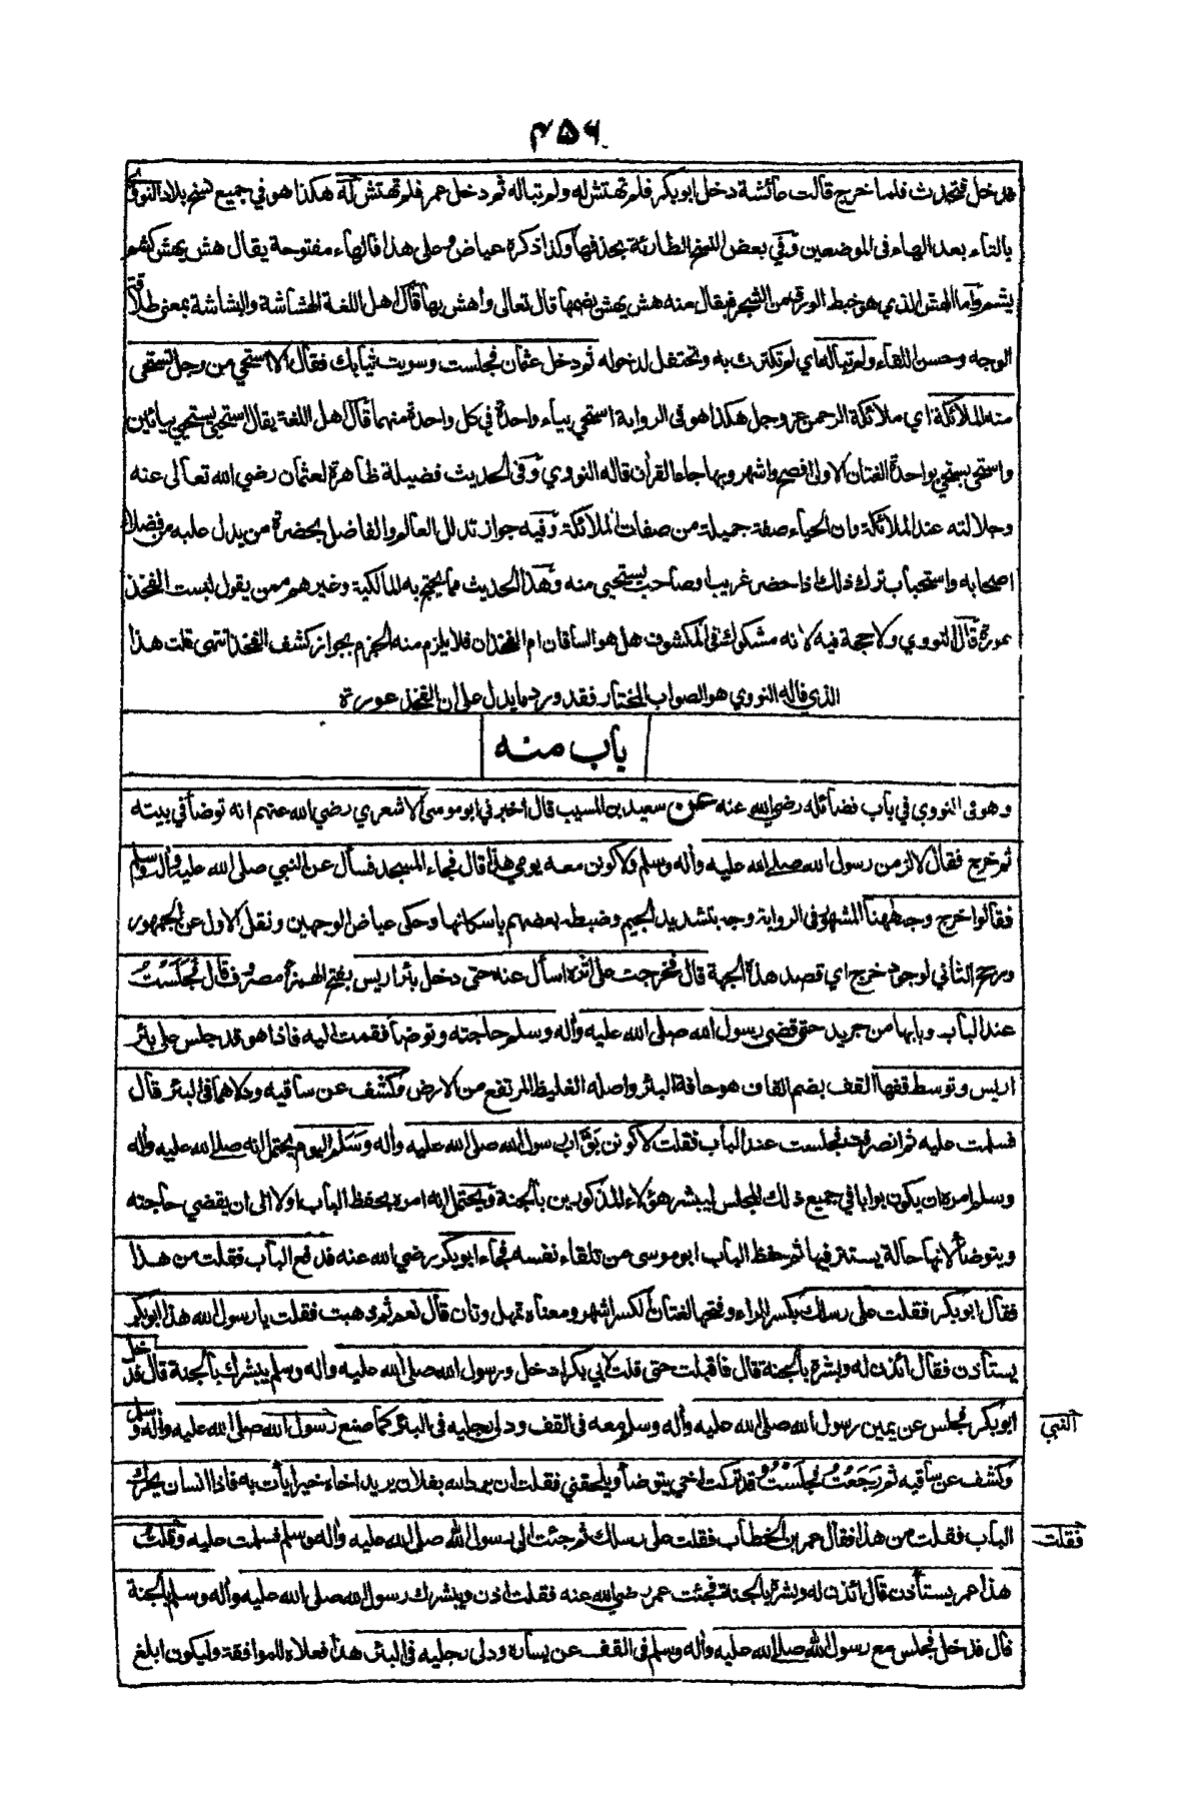 ٤٥٦
فدخل فتحدث فلما خرج قالت عائشة دخل ابوبكر فلم تهتش له ولم تباله ثم دخل عمر فلم تهتش له هكذا هو في جميع نسخ بلادنا النووي
بالتاء بعد الهاء فى الموضعين وفي بعض النسخ الطارئة بحذفها وكذا ذكره عياض وعلى هذا فالهاء مفتوحة يقال هش يهش كشم
يشم واما الهش الذي هو خبط الورق من الشجر فيقال منه هش يهش بضمها قال تعالى وأهش بها قال اهل اللغة الهشاشة والبشاشة بمعنى طلاقة
الوجه وحسن اللقاء ولم تباله اي لم تكترث به وتحتفل لدخوله ثم دخل عثمان فجلست وسويت ثيابك فقال الا استحي من رجل تستحي
منه الملائكة اي ملائكة الرحمن عز وجل هكذا هو فى الرواية استحي بياء واحدة في كل واحدة منهما قال اهل اللغة يقال استحيى يستحيي بيائين
واستحى يستحي بواحدة لغتان الاولى افصح واشهر وبها جاء القرآن قاله النووي وفى الحديث فضيلة ظاهرة لعثمان رضي الله تعالى عنه
وجلالته عند الملائكة وان الحياء صفة جميلة من صفات الملائكة وفيه جواز تدلل العالم والفاضل بحضرة من يدل عليه من فضلاء
اصحابه واستحباب ترك ذلك اذا حضر غريب او صاحب يستحيى منه وهذا الحديث مما يحتج به المالكية وغيرهم ممن يقول ليست الفخذ
عورة قال النووي ولا حجة فيه لانه مشكوك في المكشوف هل هو الساقان ام الفخذان فلا يلزم منه الجزم بجواز كشف الفخذ انتهى قلت هذا
الذي قاله النووي هو الصواب المختار فقد ورد ما يدل على ان الفخذ عورة
باب منه
وهو فى النووي في باب فضائله رضي الله عنه عن سعيد بن المسيب قال اخبرني ابو موسى الاشعري رضي الله عنهم انه توضأ في بيته
ثم خرج فقال لالزمن رسول الله صلى الله عليه وأله وسلم ولاكونن معه يومي هذا قال فجاء المسجد فسأل عن النبي صلى الله عليه وأله وسلم
فقالوا خرج وجه ههنا المشهور فى الرواية وجه بتشديد الجيم وضبطه بعضهم باسكانها وحكى عياض الوجهين ونقل الاول عن الجمهور
ورجح الثاني لوجود خرج اي قصد هذه الجهة قال فخرجت على اثره اسأل عنه حتى دخل بئر اريس بفتح الهمزة مصروف قال فجلست
عند الباب وبابها من جريد حتى قضى رسول الله صلى الله عليه وأله وسلم حاجته وتوضأ فقمت اليه فاذا هو قد جلس على بئر
اريس وتوسط قفها القف بضم القاف هو حافة البئر واصله الغليظ المرتفع من الارض وكشف عن ساقيه ودلاهما فى البئر قال
فسلمت عليه ثم انصرفت فجلست عند الباب فقلت لاكونن بوّاب رسول الله صلى الله عليه وأله وسلم اليوم يحتمل انه صلى الله عليه وأله
وسلم امره ان يكون بوابا في جميع ذلك المجلس ليبشر هؤلاء المذكورين بالجنة ويحتمل انه امره بحفظ الباب اولا الى ان يقضي حاجته
ويتوضأ لانها حالة يستتر فيها ثم حفظ الباب ابو موسى من تلقاء نفسه فجاء ابوبكر رضي الله عنه فدفع الباب فقلت من هذا
فقال ابوبكر فقلت على رسلك بكسر الراء وفتحها لغتان الكسر اشهر ومعناه تمهل وتأن قال نعم ثم ذهبت فقلت يا رسول الله هذا ابوبكر
يستأذن فقال ائذن له وبشره بالجنة قال فاقبلت حتى قلت لابي بكر ادخل ورسول الله صلى الله عليه وأله وسلم يبشرك بالجنة قال فدخل
ابوبكر فجلس عن يمين رسول الله صلى الله عليه وأله وسلم معه فى القف ودلى رجليه فى البئر كما صنع رسول الله صلى الله عليه وأله وسلم
النبي
وكشف عن ساقيه ثم رجعت فجلست وقد تركت اخي يتوضأ ويلحقني فقلت ان يرد الله بفلان يريد اخاه خيرا يأت به فاذا انسان يحرك
الباب فقلت من هذا فقال عمر بن الخطاب فقلت على رسلك ثم جئت الى رسول الله صلى الله عليه وأله وسلم فسلمت عليه وقلت
فقلت
هذا عمر يستأذن قال ائذن له وبشره بالجنة فجئت عمر رضي الله عنه فقلت اذن ويبشرك رسول الله صلى الله عليه وأله وسلم بالجنة
قال فدخل فجلس مع رسول الله صلى الله عليه وأله وسلم فى القف عن يساره ودلى رجليه فى البئر هذا فعلاه للموافقة وليكون ابلغ